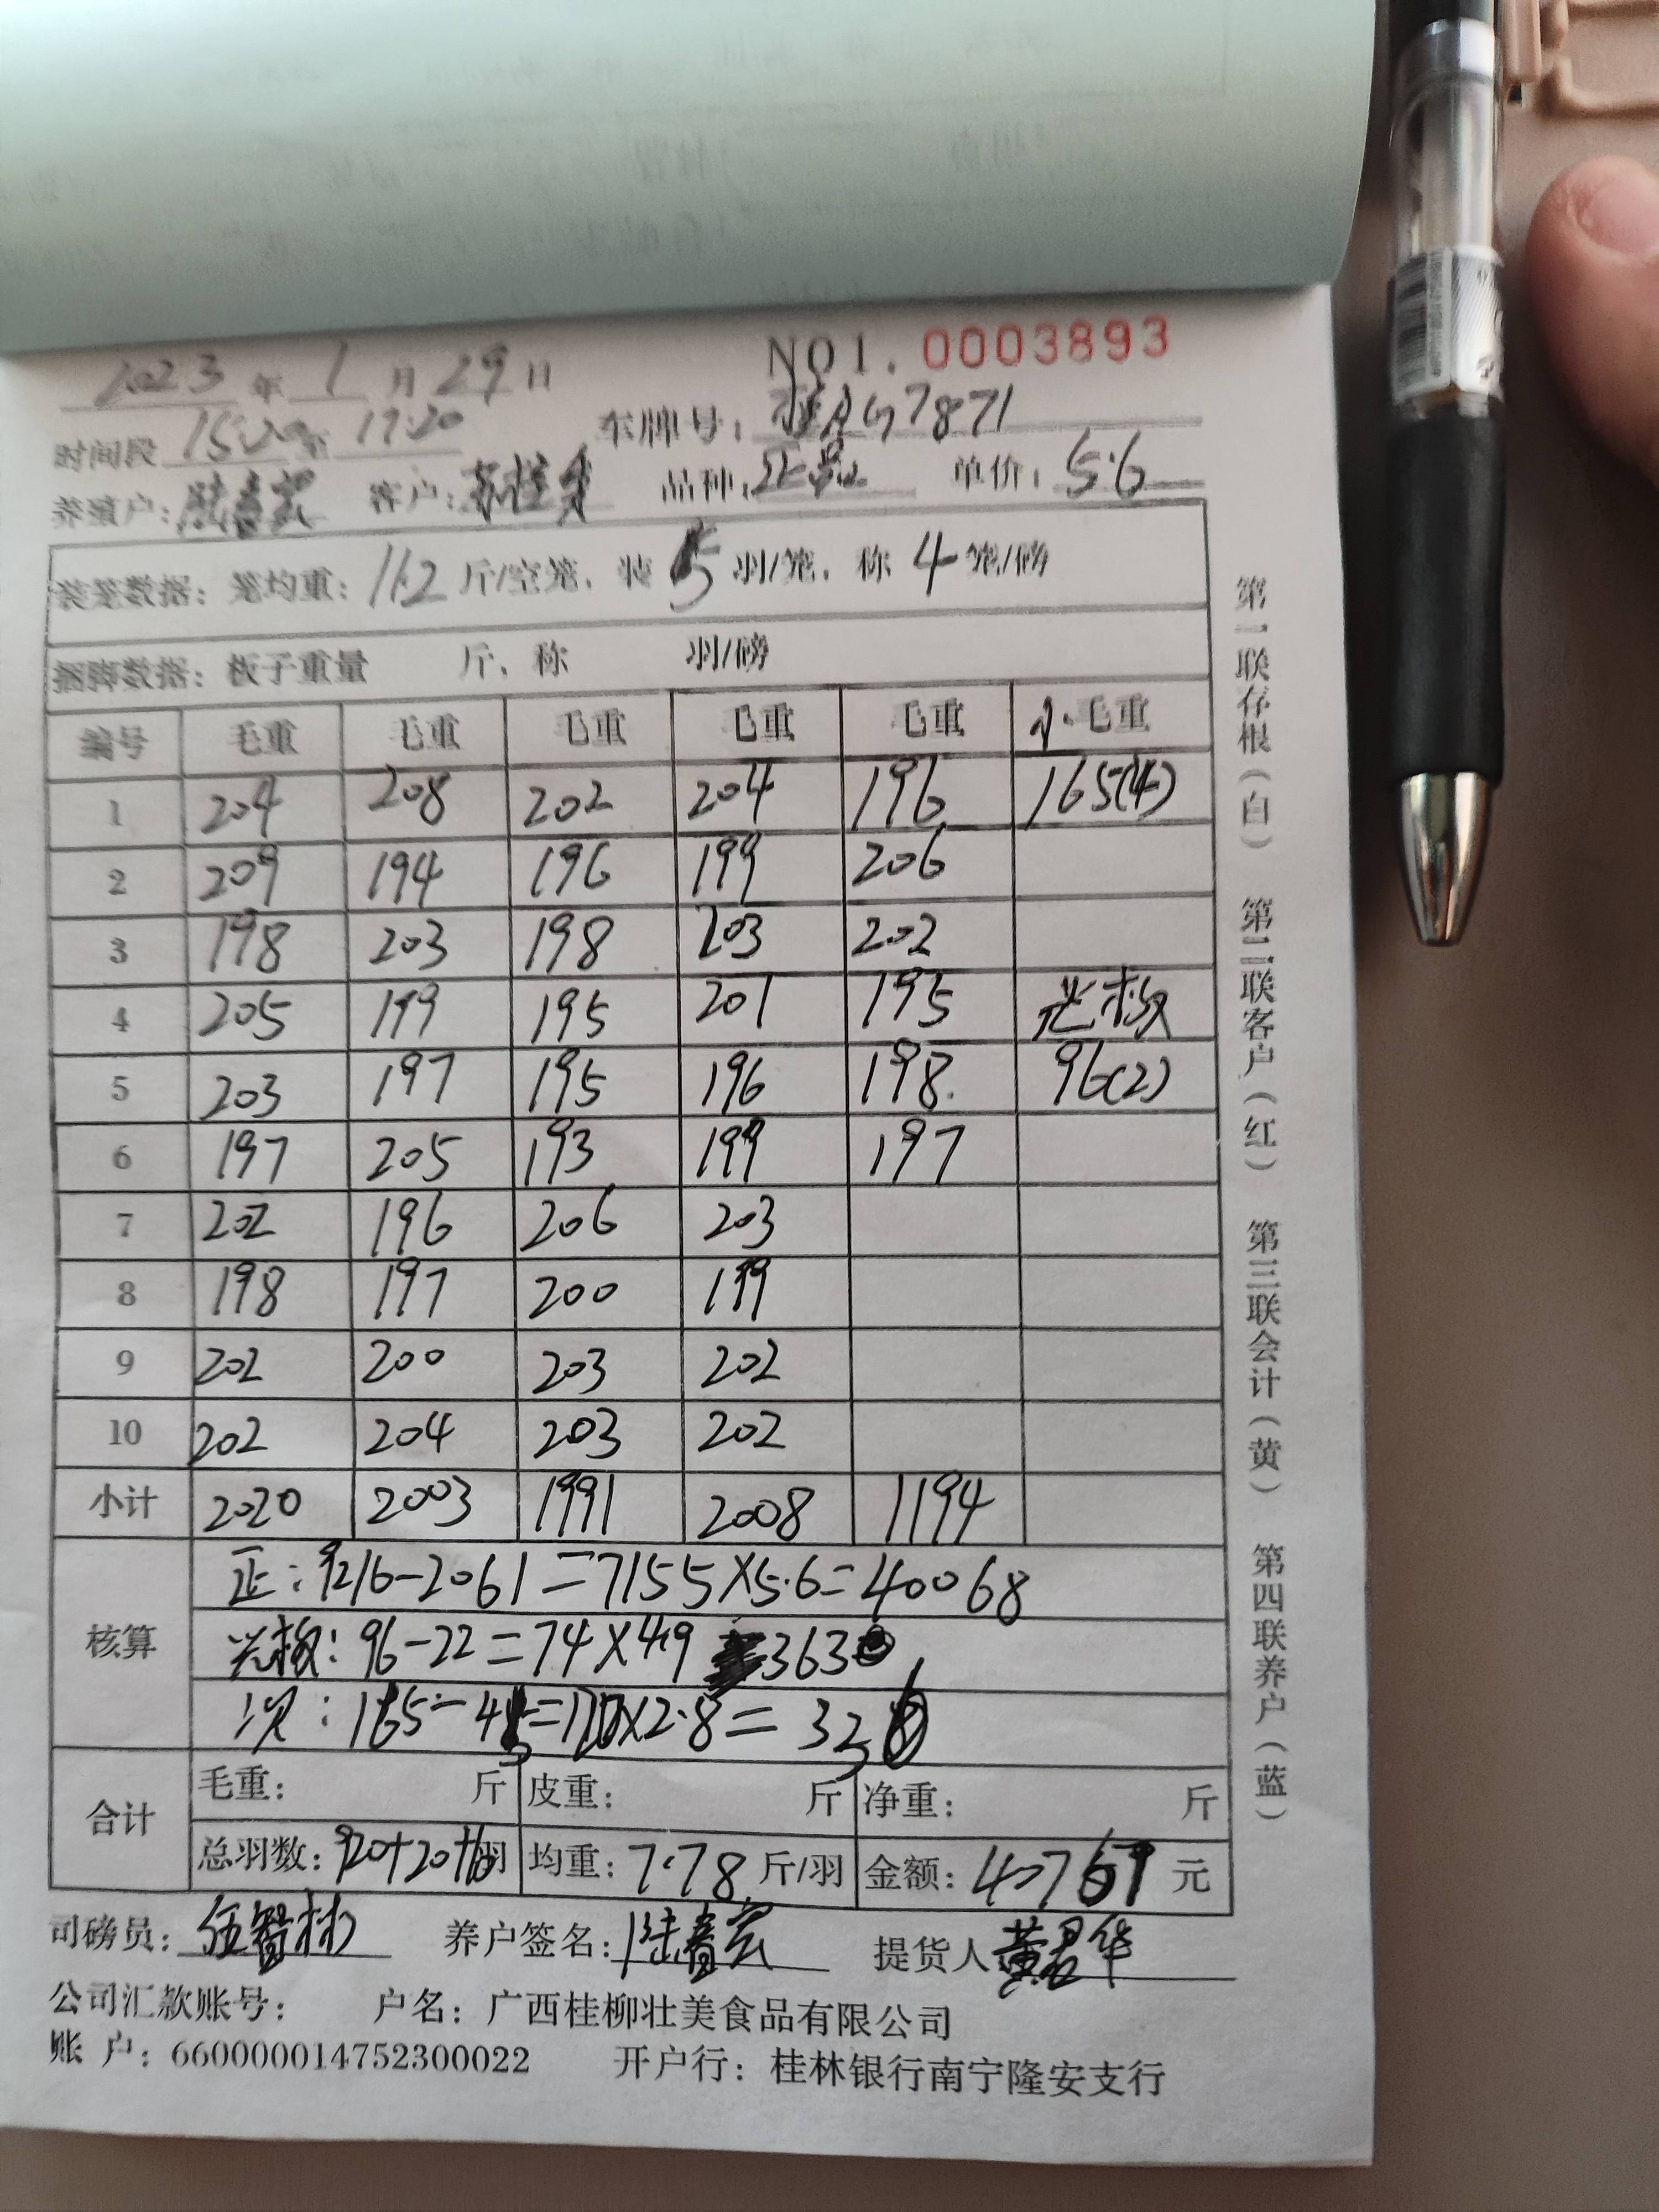 2023 年 1 月 29 日 NO1. 0003893
时间段 15:20 至 17:20 车牌号: 桂AG7871
养殖户: 陆春宏 客户: 品种: 正品 单价: 5.6
装笼数据: 笼均重: 11.2 斤/空笼, 装 5 羽/笼, 称 4 笼/磅
捆脚数据: 板子重量 斤, 称 羽/磅
编号 毛重 毛重 毛重 毛重 毛重 小毛重
1 204 208 202 204 196 165(4)
2 209 194 196 199 206
3 198 203 198 203 202
4 205 199 195 201 195 光板
5 203 197 195 196 198. 96(2)
6 197 205 193 199 197
7 202 196 206 203
8 198 197 200 199
9 202 200 203 202
10 202 204 203 202
小计 2020 2003 1991 2008 1194
核算
正: 9216-2061=7155×5.6=40068
光板: 96-22=74×4.9 363
次: 165-45=120×2.8=336
合计
毛重: 斤 皮重: 斤 净重: 斤
总羽数: 920+20+10羽 均重: 7.78 斤/羽 金额: 40767 元
司磅员: 伍智彬 养户签名: 陆春宏 提货人 黄君华
公司汇款账号: 户名: 广西桂柳壮美食品有限公司
账 户: 660000014752300022 开户行: 桂林银行南宁隆安支行
第一联存根(白) 第二联客户(红) 第三联会计(黄) 第四联养户(蓝)